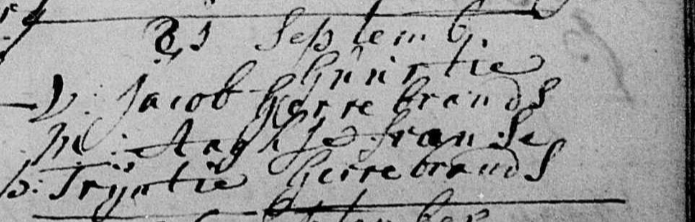 21 Septemb.
Grirtie
V. Jacob Gerrebrands
M: Anghtje franse
p: Trijntie Gerrebrands